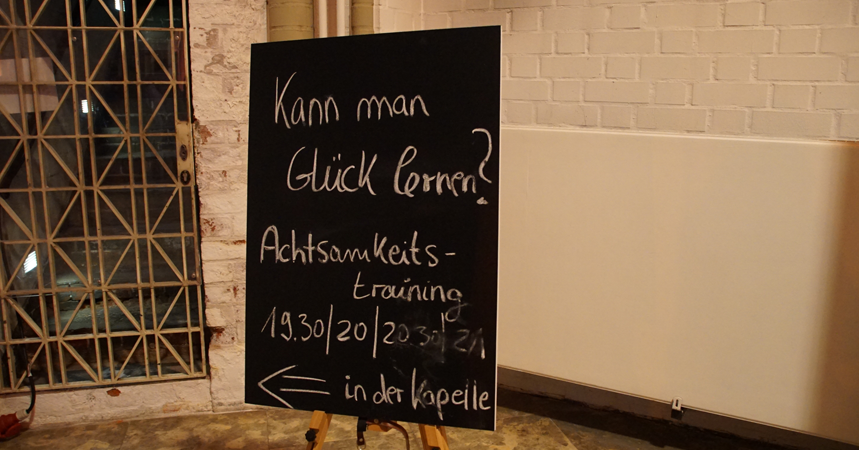 Kann man
Glück lernen?
Achtsamkeits-
training
19.30/20/20.30/21
← in der Kapelle